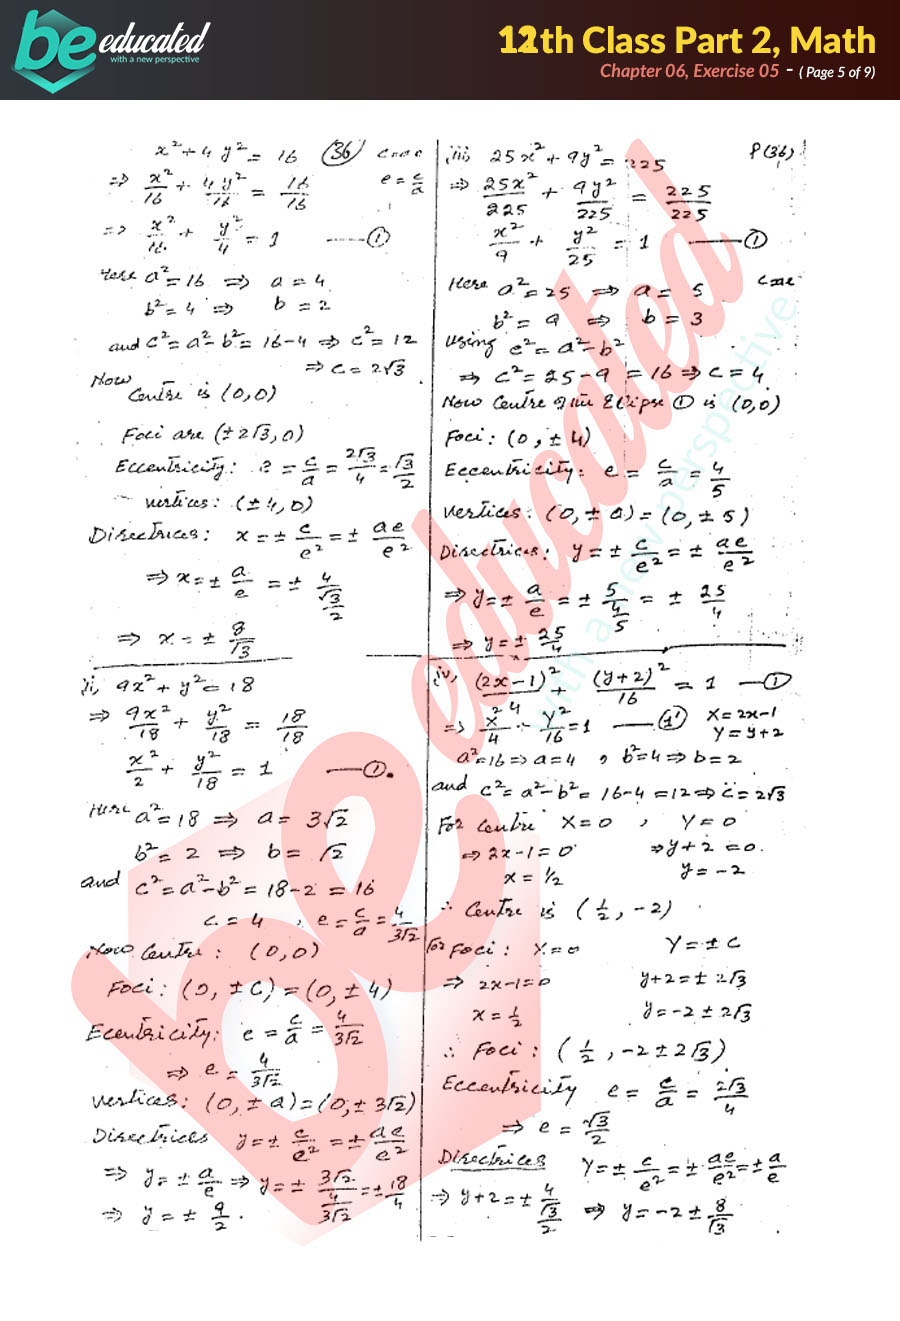 be educated
with a new perspective
12th Class Part 2, Math
Chapter 06, Exercise 05 - ( Page 5 of 9)
x² + 4y² = 16 (36)
e = c/a
⇒ x²/16 + 4y²/16 = 16/16
⇒ x²/16 + y²/4 = 1 ------①
Here a² = 16 ⇒ a = 4
b² = 4 ⇒ b = 2
and c² = a² - b² = 16 - 4 ⇒ c² = 12
⇒ c = 2√3
Now
Centre is (0,0)
Foci are (±2√3, 0)
Eccentricity: e = c/a = 2√3/4 = √3/2
vertices: (±4, 0)
Directrices: x = ± c/e² = ± ae/e²
⇒ x = ± a/e = ± 4/(√3/2)
⇒ x = ± 8/√3
ii, 9x² + y² = 18
⇒ 9x²/18 + y²/18 = 18/18
x²/2 + y²/18 = 1 ——①.
Here a² = 18 ⇒ a = 3√2
b² = 2 ⇒ b = √2
and c² = a² - b² = 18 - 2 = 16
c = 4 , e = c/a = 4/3√2
Now Centre : (0,0)
Foci : (0, ±c) = (0, ±4)
Eccentricity: e = c/a = 4/3√2
⇒ e = 4/3√2
vertices: (0, ±a) = (0, ±3√2)
Directrices y = ± c/e² = ± ae/e²
⇒ y = ± a/e ⇒ y = ± 3√2/(4/3√2) = ± 18/4
⇒ y = ± 9/2 .
iii) 25x² + 9y² = 225 P(36)
⇒ 25x²/225 + 9y²/225 = 225/225
x²/9 + y²/25 = 1 ——①
Here a² = 25 ⇒ a = 5
b² = 9 ⇒ b = 3
using c² = a² - b²
⇒ c² = 25 - 9 = 16 ⇒ c = 4
Now Centre of the Ellipse ① is (0,0)
Foci : (0, ±4)
Eccentricity: e = c/a = 4/5
vertices: (0, ±a) = (0, ±5)
Directrices: y = ± c/e² = ± ae/e²
⇒ y = ± a/e = ± 5/(4/5) = ± 25/4
⇒ y = ± 25/4
iv, (2x-1)²/4 + (y+2)²/16 = 1 —①
⇒ X²/4 + Y²/16 = 1 —①' X = 2x-1
Y = y+2
a² = 16 ⇒ a = 4 , b² = 4 ⇒ b = 2
and c² = a² - b² = 16 - 4 = 12 ⇒ c = 2√3
For Centre X = 0 , Y = 0
⇒ 2x-1 = 0 ⇒ y+2 = 0.
x = 1/2 y = -2
∴ Centre is (1/2, -2)
For Foci : X = 0 Y = ± c
⇒ 2x-1 = 0 y+2 = ± 2√3
x = 1/2 y = -2 ± 2√3
∴ Foci : (1/2, -2 ± 2√3)
Eccentricity e = c/a = 2√3/4
⇒ e = √3/2
Directrices Y = ± c/e² = ± ae/e² = ± a/e
⇒ y+2 = ± 4/(√3/2) ⇒ y = -2 ± 8/√3
be educated
with a new perspective